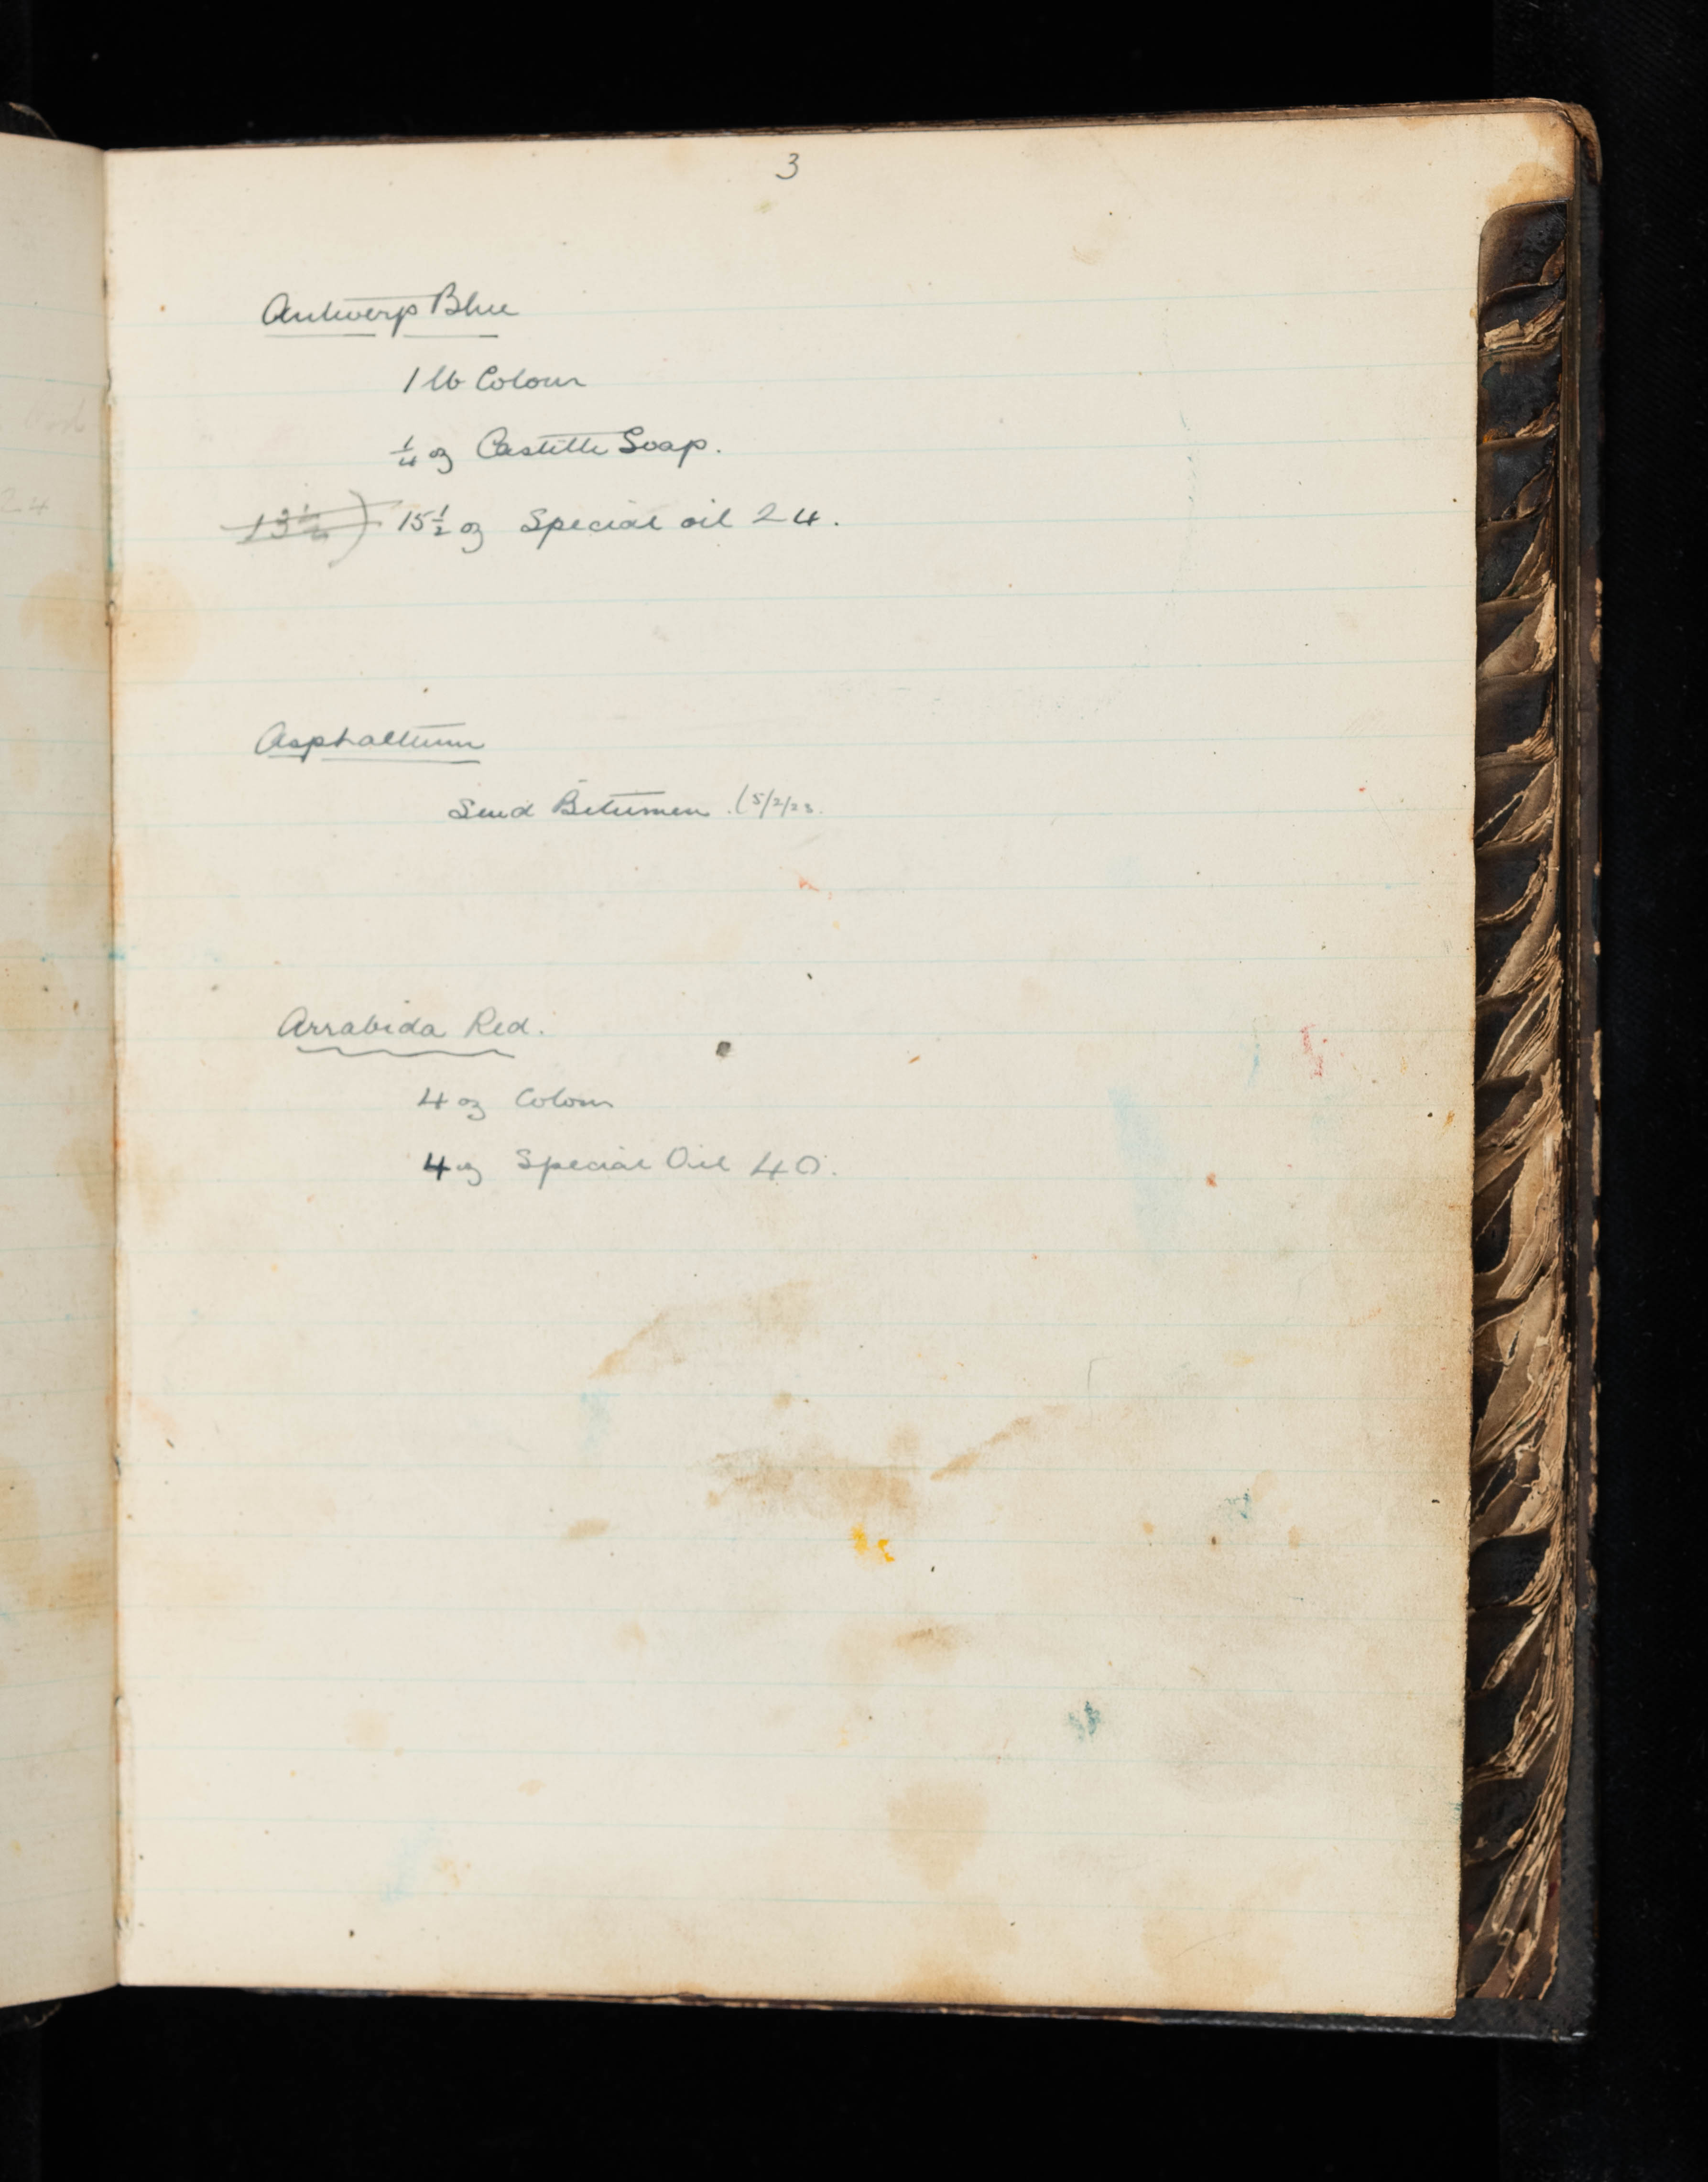 3
Antwerp Blue
1 lb Colour
¼ oz Castille Soap.
13½) 15½ oz Special oil 24.
Asphaltum
Send Bitumen. (5/2/23.
Arrabida Red.
4 oz Colour
4 oz Special Oil 40.
24